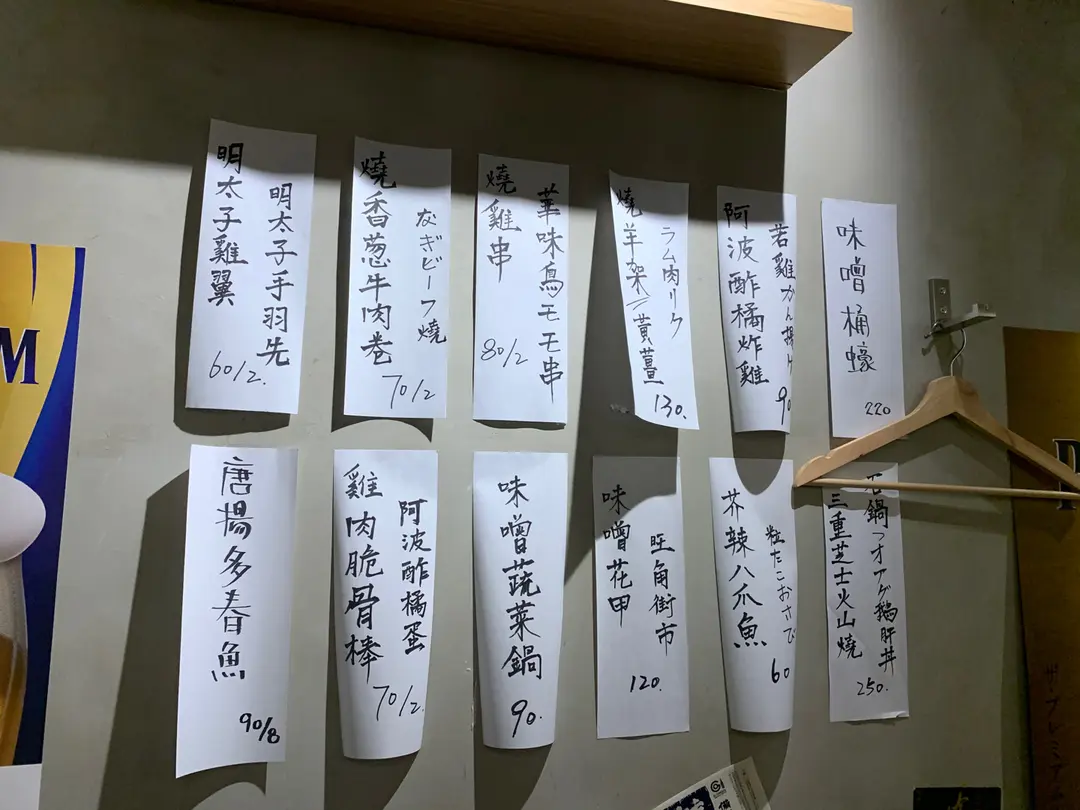 明太子雞翼
明太子手羽先
60/2.
燒香葱牛肉卷
なぎビーフ燒
70/2
燒雞串
華味鳥モモ串
80/2
燒羊架/黃薑
ラム肉リク
130.
阿波酢橘炸雞
若雞かん揚け
90
味噌桶蠔
220
唐揚多春魚
90/8
雞肉脆骨棒
阿波酢橘蛋
70/2.
味噌蔬菜鍋
90.
味噌花甲
旺角街市
120.
芥辣八爪魚
粒たこおさび
60
三重芝士火山燒
鍋フオアグ鵝肝丼
250.
M
ザ・プレミア